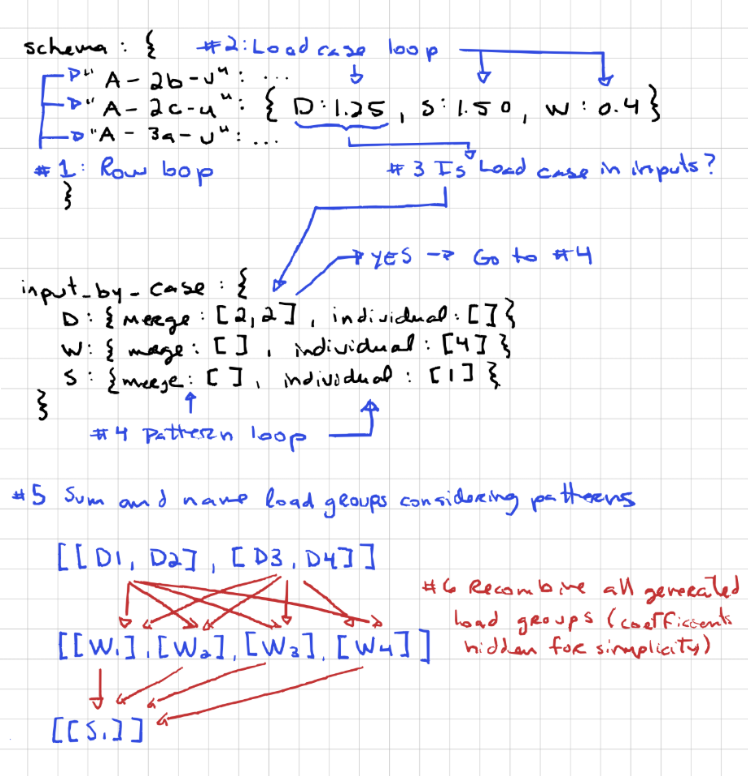 schema : {
#2: Load case loop
"A-2b-u" : ...
"A-2c-u" : { D:1.25, S:1.50, W:0.4}
"A-3a-u" : ...
#1: Row loop
#3 Is Load case in inputs?
}
YES → Go to #4
input_by_case : {
D: { merge : [2,2], individual : []}
W: { merge : [], individual : [4] }
S : {merge : [], individual : [1] }
}
#4 Pattern loop
#5 Sum and name load groups considering patterns
[[D1, D2], [D3, D4]]
#6 Recombine all generated
load groups (coefficients
hidden for simplicity)
[[W1],[W2],[W3],[W4]]
[[S1]]